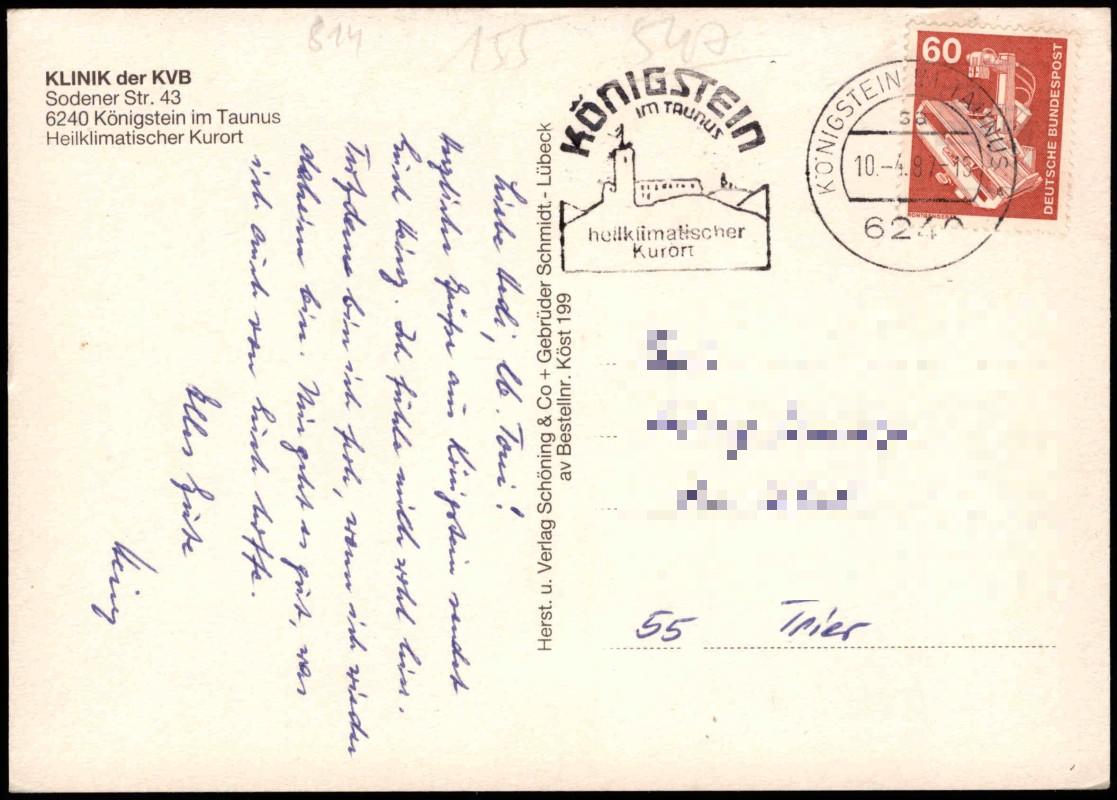 814 155
KLINIK der KVB
Sodener Str. 43
6240 Königstein im Taunus
Heilklimatischer Kurort
Liebe Hedi, lb. Toni!
Herzliche Grüße aus Königstein sendet
Euch Heinz. Ich fühle mich wohl hier.
Trotzdem bin ich froh, wenn ich wieder
daheim bin. Mir geht es gut, was
ich auch von Euch hoffe.
Alles Gute
Heinz
Herst. u. Verlag Schöning & Co + Gebrüder Schmidt - Lübeck
av Bestellnr. Köst 199
KÖNIGSTEIN
IM TAUNUS
heilklimatischer
Kurort
KÖNIGSTEIN IM TAUNUS
10.-4.87-19
6240
60
DEUTSCHE BUNDESPOST
55 Trier